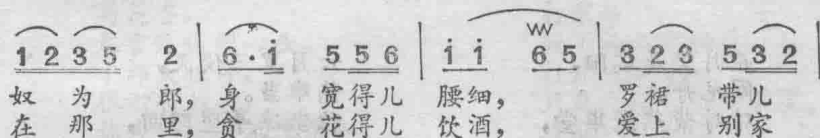 1 2 3 5 2 | 6 · i 5 5 6 | i i 6 5 | 3 2 3 5 3 2 |
奴 为 郎, 身 宽得儿 腰细, 罗裙 带儿
在 那 里, 贪 花得儿 饮酒, 爱上 别家